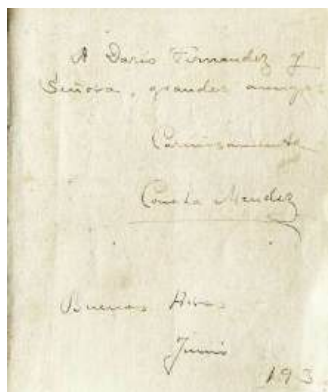 A Dario Fernandez y
Señora, grandes amigos
Cariñosamente
Concha Mendez
Buenos Aires
Junio
193